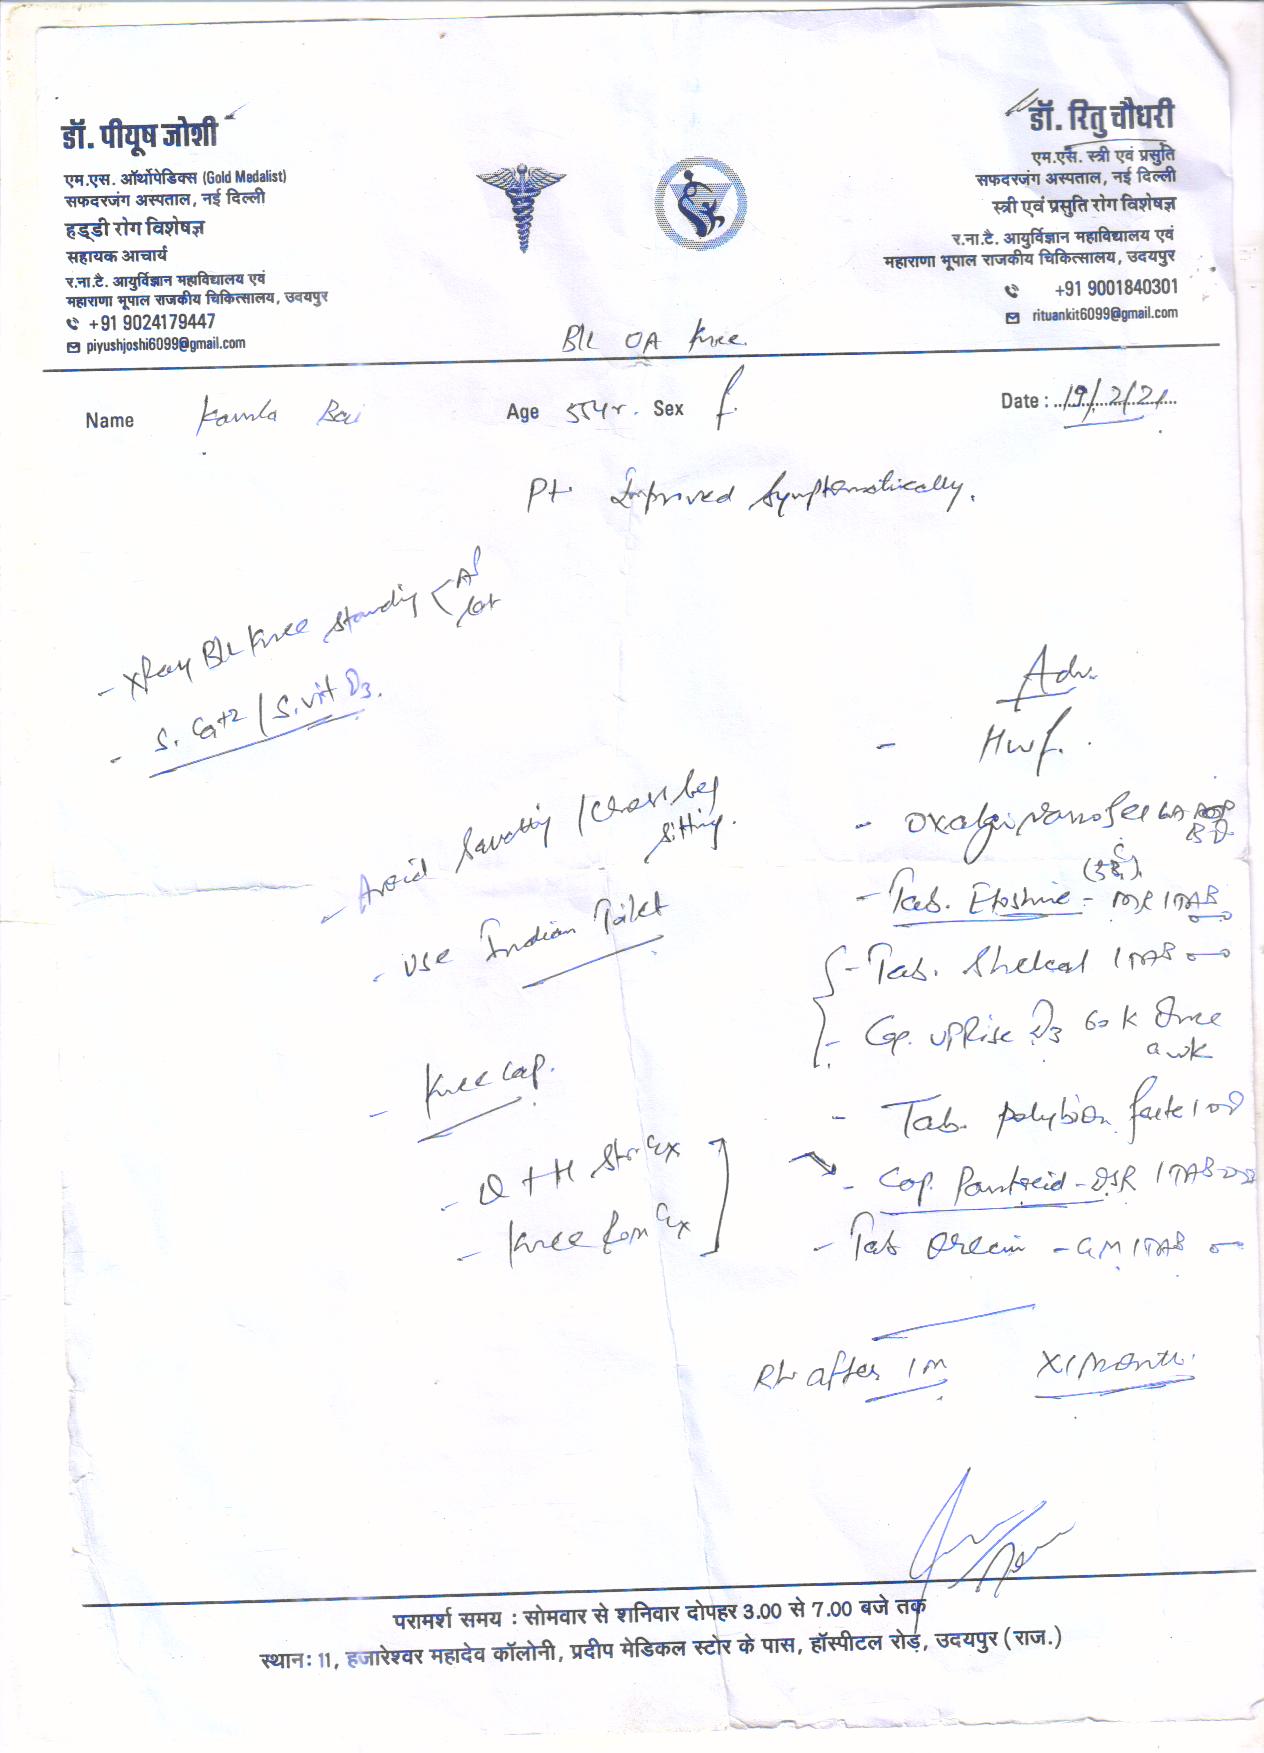 डॉ. पीयूष जोशी
एम.एस. ऑर्थोपेडिक्स (Gold Medalist)
सफदरजंग अस्पताल, नई दिल्ली
हड्डी रोग विशेषज्ञ
सहायक आचार्य
र.ना.टै. आयुर्विज्ञान महाविद्यालय एवं
महाराणा भूपाल राजकीय चिकित्सालय, उदयपुर
+91 9024179447
piyushjoshi6099@gmail.com
डॉ. रितु चौधरी
एम.एस. स्त्री एवं प्रसुति
सफदरजंग अस्पताल, नई दिल्ली
स्त्री एवं प्रसुति रोग विशेषज्ञ
र.ना.टै. आयुर्विज्ञान महाविद्यालय एवं
महाराणा भूपाल राजकीय चिकित्सालय, उदयपुर
+91 9001840301
rituankit6099@gmail.com
B/L OA Knee.
Name Kamla Bai Age 55yr. Sex f. Date : 19/2/21
Pt. Improved Symptomatically.
- XRay B/L Knee standing < AP
Lat
- S. Ca+2 / S. vit D3.
- Avoid Squatting / Cross leg
sitting.
- Use Indian Toilet
- Knee Cap.
- Q + H Str. Ex
- Knee Rom Ex
Adv.
- Hwf.
- Oxalgin nano gel LA
BD
- Tab. Etoshine - MR 1 TAB
- Tab. Shelcal 1 TAB
- Cap. UPRise D3 60K Once
a wk
- Tab. polybion forte 1 OD
- Cap. Pantocid - DSR 1 TAB
- Tab - GM 1 TAB
R/w after 1m X 1 Month.
परामर्श समय : सोमवार से शनिवार दोपहर 3.00 से 7.00 बजे तक
स्थान: 11, हजारेश्वर महादेव कॉलोनी, प्रदीप मेडिकल स्टोर के पास, हॉस्पीटल रोड़, उदयपुर (राज.)